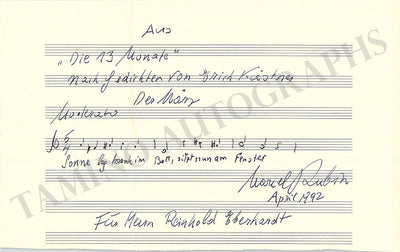 Aus
"Die 13 Monate"
nach Gedichten von Erich Kästner
Der März
Moderato
Sonne lag krank im Bett, sitzt nun am Fenster
Marcel Rubin
April 1992
Für Herrn Reinhold Eberhardt
TAMINO AUTOGRAPHS